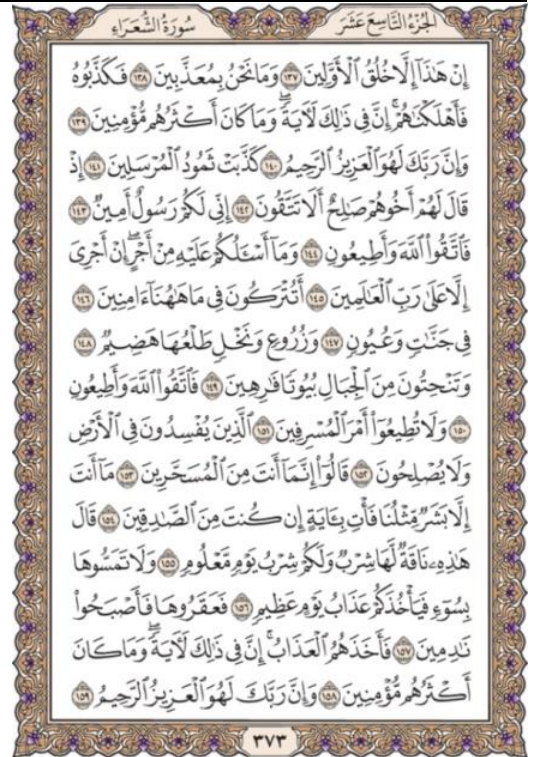 الجُزْءُ التَّاسِعَ عَشَرَ سُورَةُ الشُّعَرَاءِ
إِنْ هَٰذَآ إِلَّا خُلُقُ ٱلْأَوَّلِينَ ١٣٧ وَمَا نَحْنُ بِمُعَذَّبِينَ ١٣٨ فَكَذَّبُوهُ
فَأَهْلَكْنَٰهُمْ ۗ إِنَّ فِى ذَٰلِكَ لَءَايَةً ۖ وَمَا كَانَ أَكْثَرُهُم مُّؤْمِنِينَ ١٣٩
وَإِنَّ رَبَّكَ لَهُوَ ٱلْعَزِيزُ ٱلرَّحِيمُ ١٤٠ كَذَّبَتْ ثَمُودُ ٱلْمُرْسَلِينَ ١٤١ إِذْ
قَالَ لَهُمْ أَخُوهُمْ صَٰلِحٌ أَلَا تَتَّقُونَ ١٤٢ إِنِّى لَكُمْ رَسُولٌ أَمِينٌ ١٤٣
فَٱتَّقُوا۟ ٱللَّهَ وَأَطِيعُونِ ١٤٤ وَمَآ أَسْـَٔلُكُمْ عَلَيْهِ مِنْ أَجْرٍ ۖ إِنْ أَجْرِىَ
إِلَّا عَلَىٰ رَبِّ ٱلْعَٰلَمِينَ ١٤٥ أَتُتْرَكُونَ فِى مَا هَٰهُنَآ ءَامِنِينَ ١٤٦
فِى جَنَّٰتٍ وَعُيُونٍ ١٤٧ وَزُرُوعٍ وَنَخْلٍ طَلْعُهَا هَضِيمٌ ١٤٨
وَتَنْحِتُونَ مِنَ ٱلْجِبَالِ بُيُوتًا فَٰرِهِينَ ١٤٩ فَٱتَّقُوا۟ ٱللَّهَ وَأَطِيعُونِ
١٥٠ وَلَا تُطِيعُوٓا۟ أَمْرَ ٱلْمُسْرِفِينَ ١٥١ ٱلَّذِينَ يُفْسِدُونَ فِى ٱلْأَرْضِ
وَلَا يُصْلِحُونَ ١٥٢ قَالُوٓا۟ إِنَّمَآ أَنتَ مِنَ ٱلْمُسَحَّرِينَ ١٥٣ مَآ أَنتَ
إِلَّا بَشَرٌ مِّثْلُنَا فَأْتِ بِـَٔايَةٍ إِن كُنتَ مِنَ ٱلصَّٰدِقِينَ ١٥٤ قَالَ
هَٰذِهِۦ نَاقَةٌ لَّهَا شِرْبٌ وَلَكُمْ شِرْبُ يَوْمٍ مَّعْلُومٍ ١٥٥ وَلَا تَمَسُّوهَا
بِسُوٓءٍ فَيَأْخُذَكُمْ عَذَابُ يَوْمٍ عَظِيمٍ ١٥٦ فَعَقَرُوهَا فَأَصْبَحُوا۟
نَٰدِمِينَ ١٥٧ فَأَخَذَهُمُ ٱلْعَذَابُ ۗ إِنَّ فِى ذَٰلِكَ لَءَايَةً ۖ وَمَا كَانَ
أَكْثَرُهُم مُّؤْمِنِينَ ١٥٨ وَإِنَّ رَبَّكَ لَهُوَ ٱلْعَزِيزُ ٱلرَّحِيمُ ١٥٩
٣٧٣